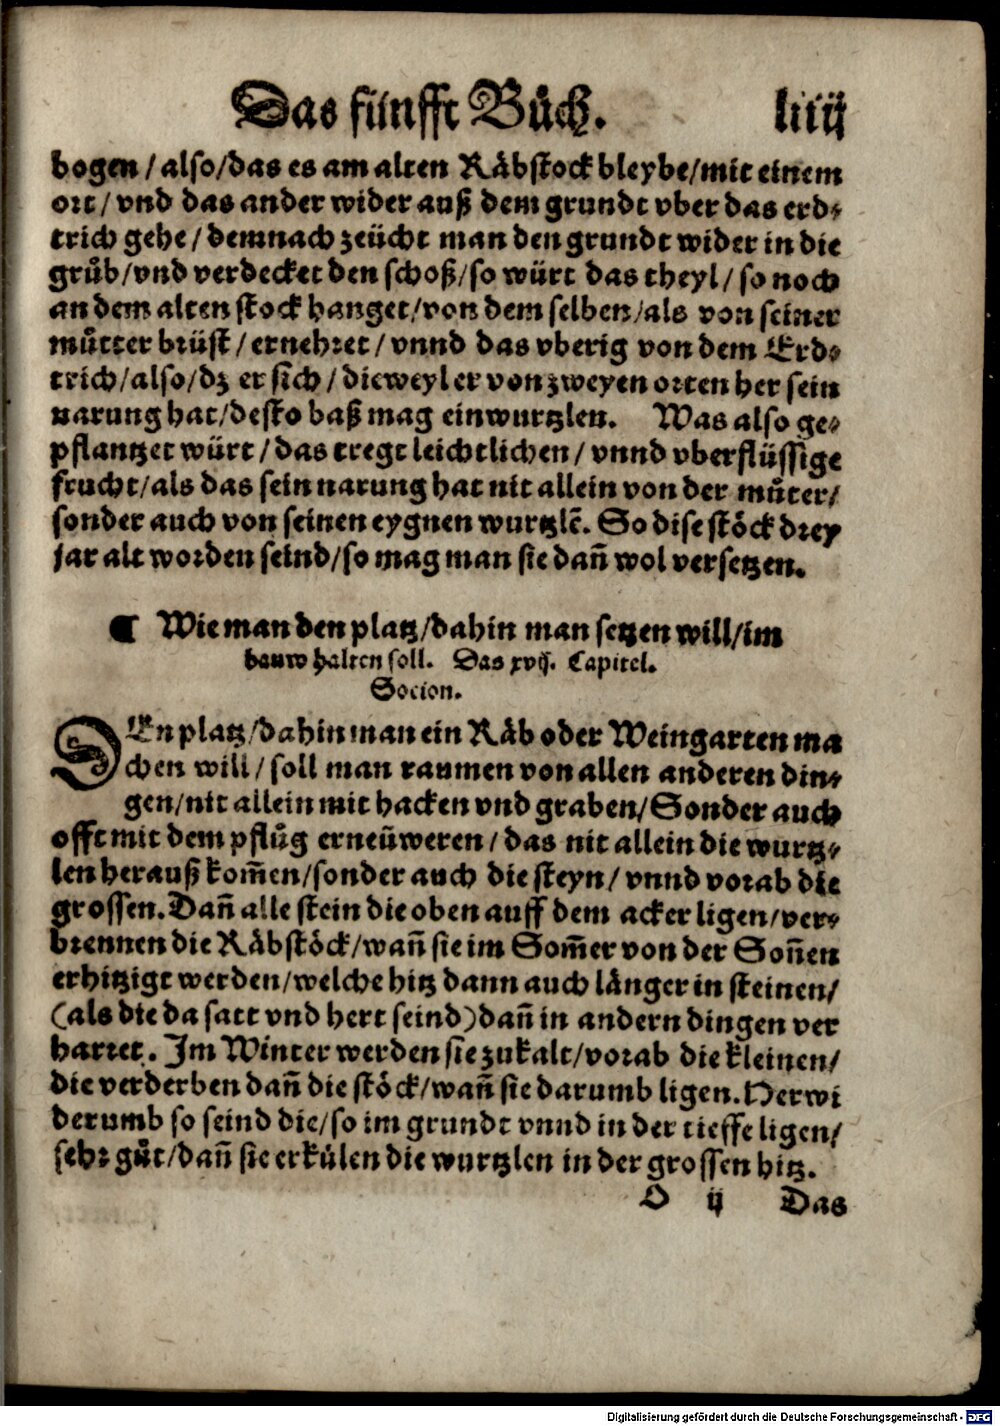 Das fünfft Bůch. liiij
bogen / also/das es am alten Räbstock bleybe/mit einem
ort / vnd das ander wider auß dem grundt vber das erd⸗
trich gehe / demnach zeücht man den grundt wider in die
grůb/vnd verdecket den schoß/so würt das theyl / so noch
an dem alten stock hanget/von dem selben/als von seiner
můtter brüst / ernehret / vnnd das vberig von dem Erd⸗
trich/also/dz er sich / dieweyl er von zweyen orten her sein
narung hat/desto baß mag einwurtzlen. Was also ge⸗
pflantzet würt / das tregt leichtlichen / vnnd vberflüssige
frucht/als das sein narung hat nit allein von der můter/
sonder auch von seinen eygnen wurtzlē. So dise stöck drey
jar alt worden seind/so mag man sie dañ wol versetzen.
¶ Wie man den platz/dahin man setzen will/im
bauw halten soll. Das xvij. Capitel.
Socion.
DEn platz/dahin man ein Räb oder Weingarten ma
chen will / soll man raumen von allen anderen din⸗
gen/nit allein mit hacken vnd graben/Sonder auch
offt mit dem pflůg erneüweren / das nit allein die wurtz⸗
len herauß kom̃en/sonder auch die steyn / vnnd vorab die
grossen. Dañ alle stein die oben auff dem acker ligen/ver⸗
brennen die Räbstöck/wañ sie im Som̃er von der Soñen
erhitzigt werden/welche hitz dann auch länger in steinen/
(als die da satt vnd hert seind)dañ in andern dingen ver
harret. Im Winter werden sie zu kalt/vorab die kleinen/
die verderben dañ die stöck/wañ sie darumb ligen. Herwi
derumb so seind die/so im grundt vnnd in der tieffe ligen/
sehr gůt/dañ sie erkülen die wurtzlen in der grossen hitz.
O ij Das
Digitalisierung gefördert durch die Deutsche Forschungsgemeinschaft - DFG